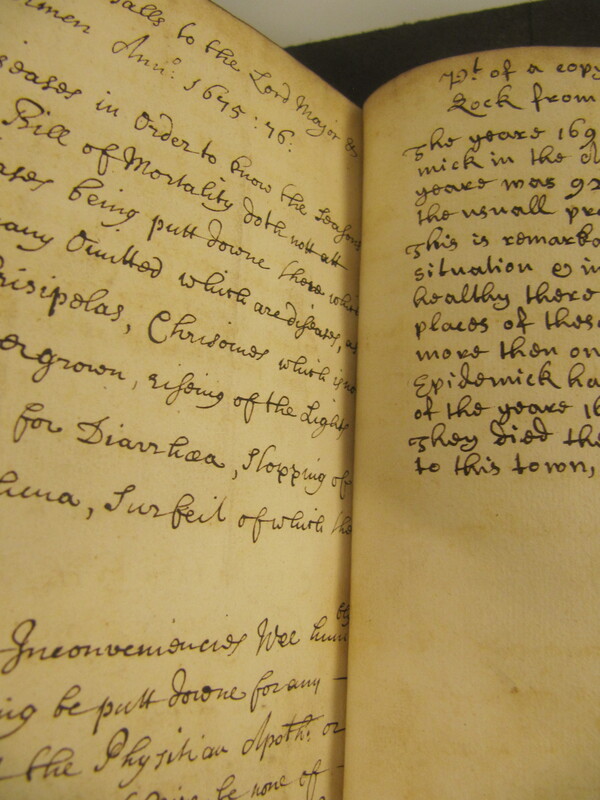 alls to the Lord Major &
men Ann: 1675:76:
seases in Order to know the seasons
Bill of Mortality doth nott att
ases being putt downe there whi
any Omitted which are diseases, as
risipelas, Chrisomes which is no
ergrown, riseing of the Lights
for Diarrhœa, Stopping of
huna, Surfeit of which the
Inconveniencies Wee hum
ng be putt downe for any
the Physitian Apoth: or
be none of
Pt of a copy
Lock from
The yeare 169
mick in the
yeare was 92
the usuall pro
This is remarka
situation & in
healthy there
places of these
more then on
Epidemick ha
of the yeare 16
They died the
to this town,